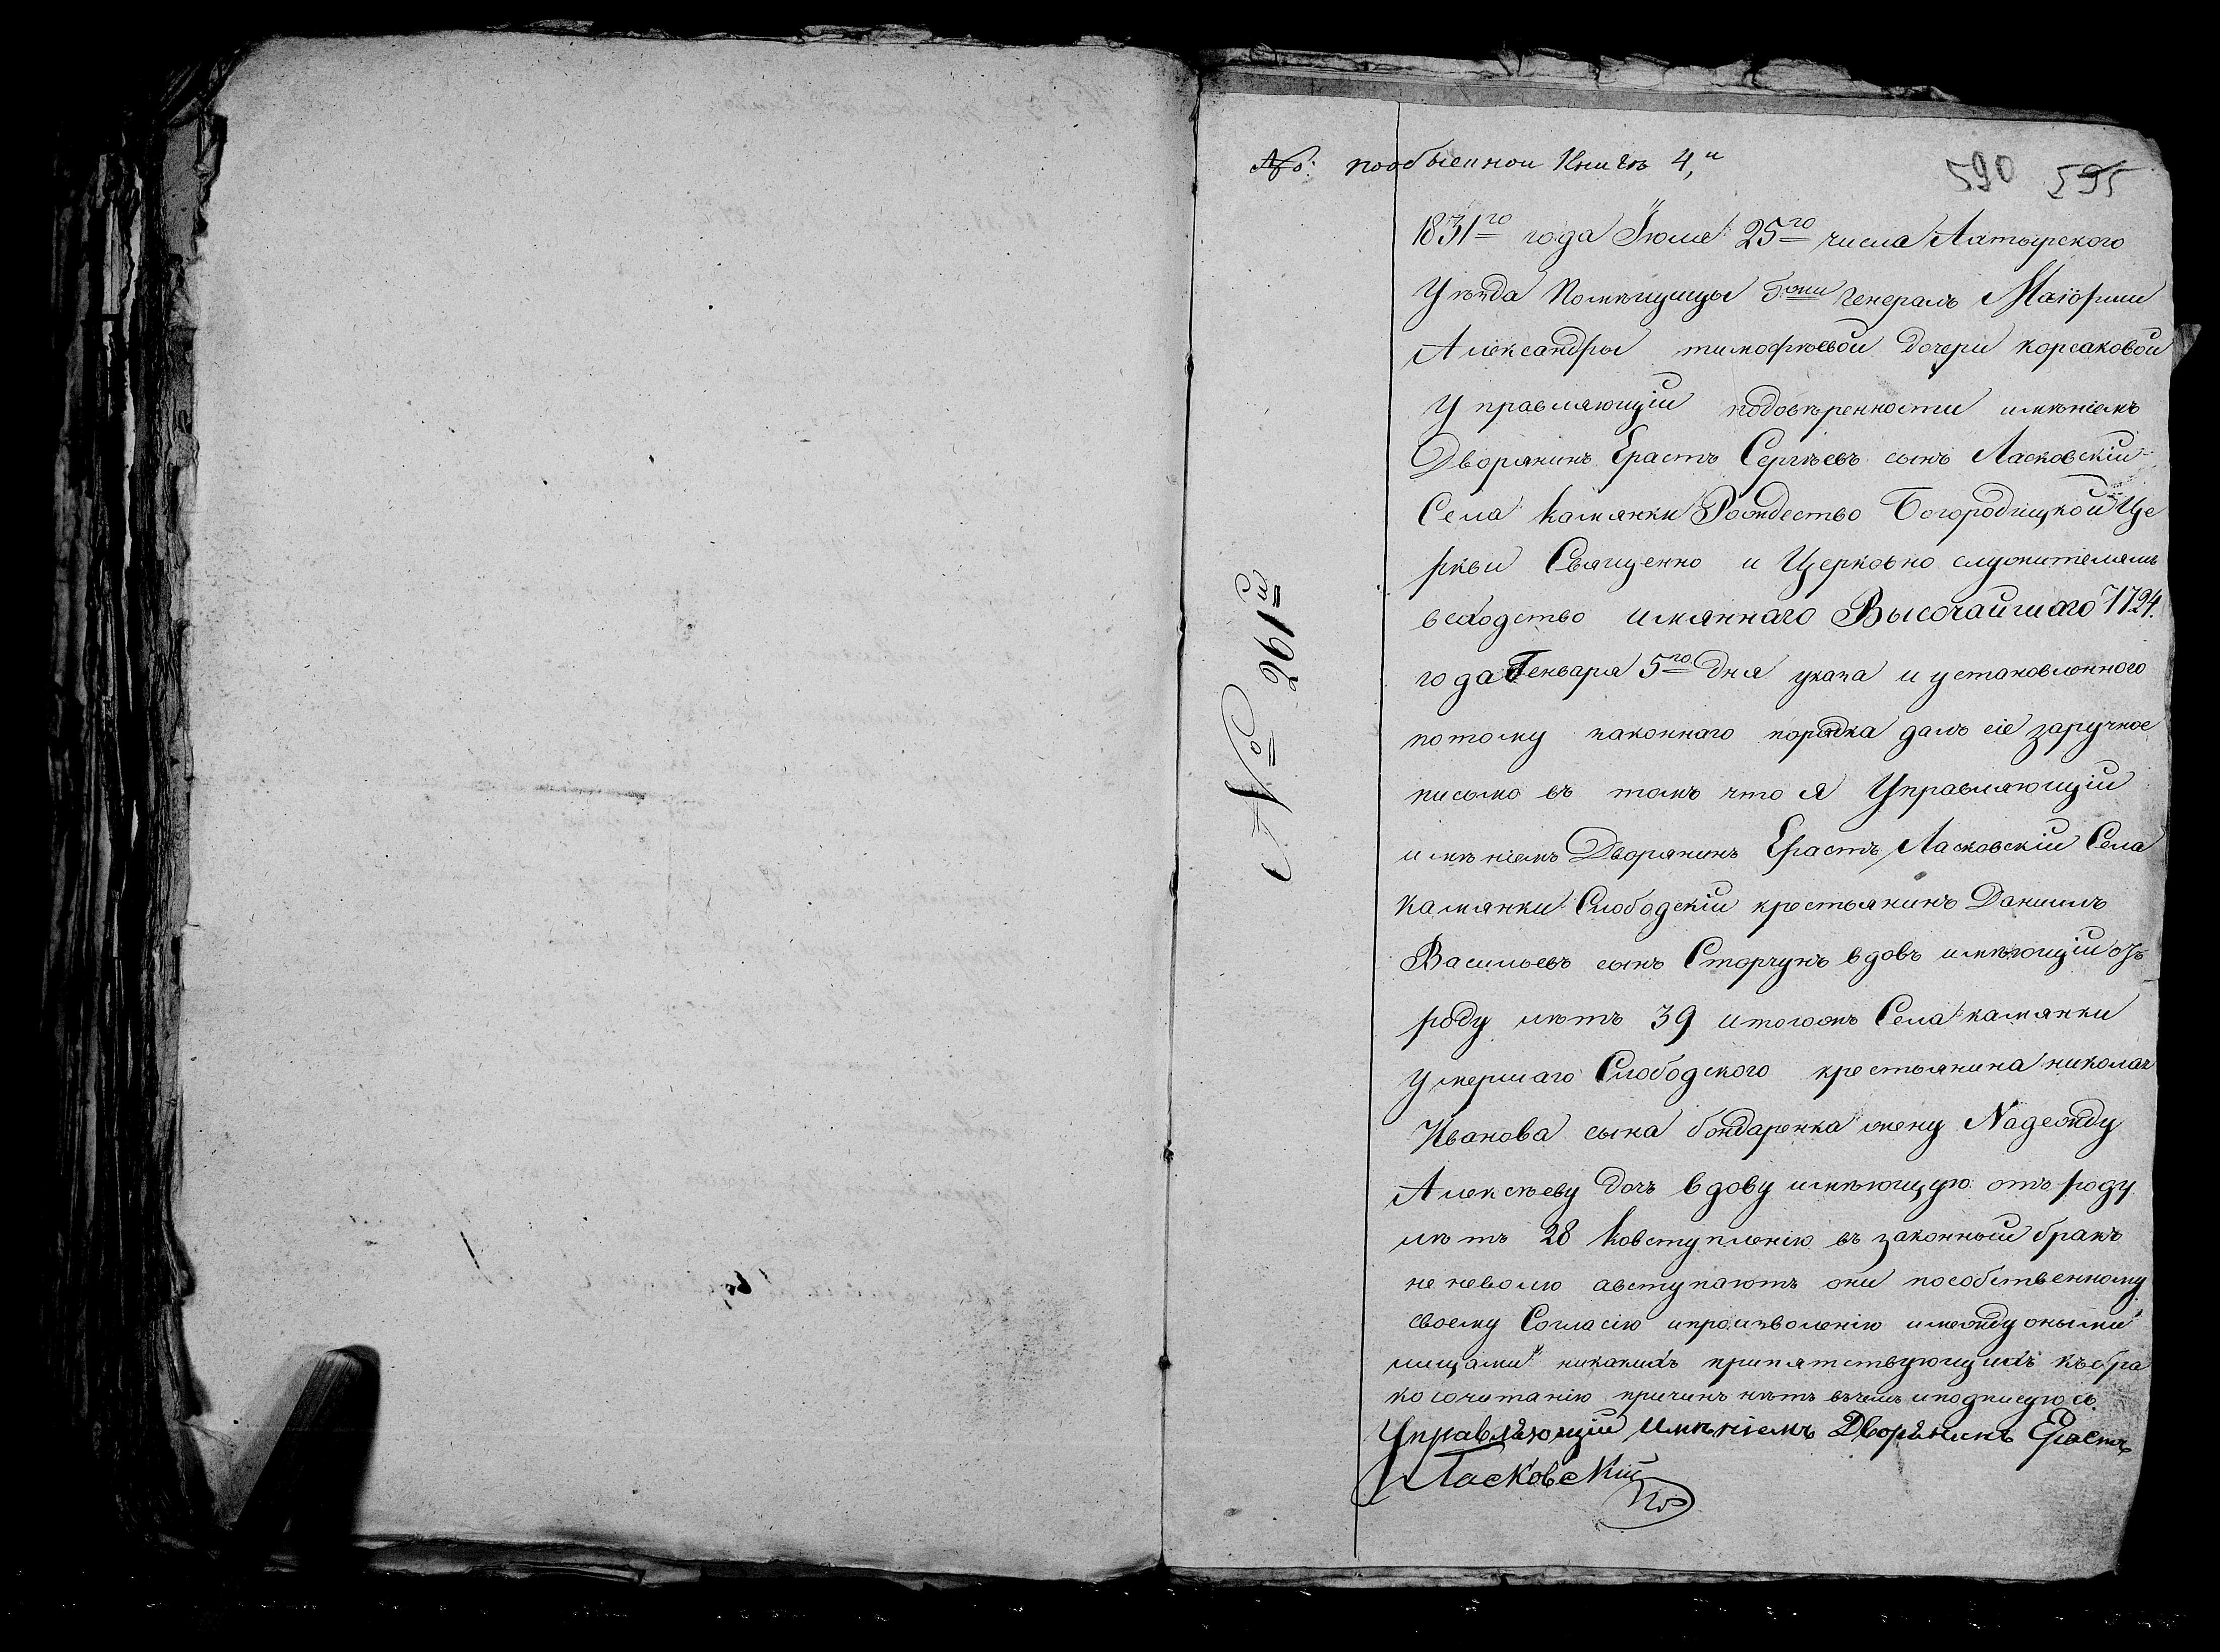 №: пообыскной Книгѣ 4,й
590 595
№ 261й
1831го года Іюля 25го числа Ахтырского
Уѣзда Помѣщицы Гжи Генералъ Маіорши
Александры тимофѣевой Дочери корсаковой
Управляющій подовѣренности имѣніемъ
Дворянинъ Ерастъ Сергѣевъ сынъ Ласковскій
Села камянки Рождество Богородицкой Це
ркви Священно и Церковно служителямъ
вслѣдство имяннаго Высочайшаго 1724.
года Генваря 5го Дня указа и установленного
потому законнаго порядка далъ сіе заручное
письмо въ томъ что я Управляющій
имѣніемъ Дворянинъ Ерастъ Ласковскій Села
Камянки Слободскій крестьянинъ Даниилъ
Васильевъ сынъ Сторчунъ вдовъ имѣющій отъ
роду лѣтъ 39 итогожъ Села камянки
умершаго Слободского крестьянина николая
Иванова сына бондаренка жену Nадежду
Алексѣеву Дочь вдову имѣющую отъ роду
лѣтъ 28 ковступленію въ законный бракъ
не неволю авступаютъ они пособственному
своему Согласію ипроизволенію имежду оными
лицами никакихъ припятствующихъ къ бра
косочитанію причинъ нѣтъ въчемъ иподписуюсь.
Управляющій Имѣніемъ Дворянинъ Ерастъ
Ласковскій